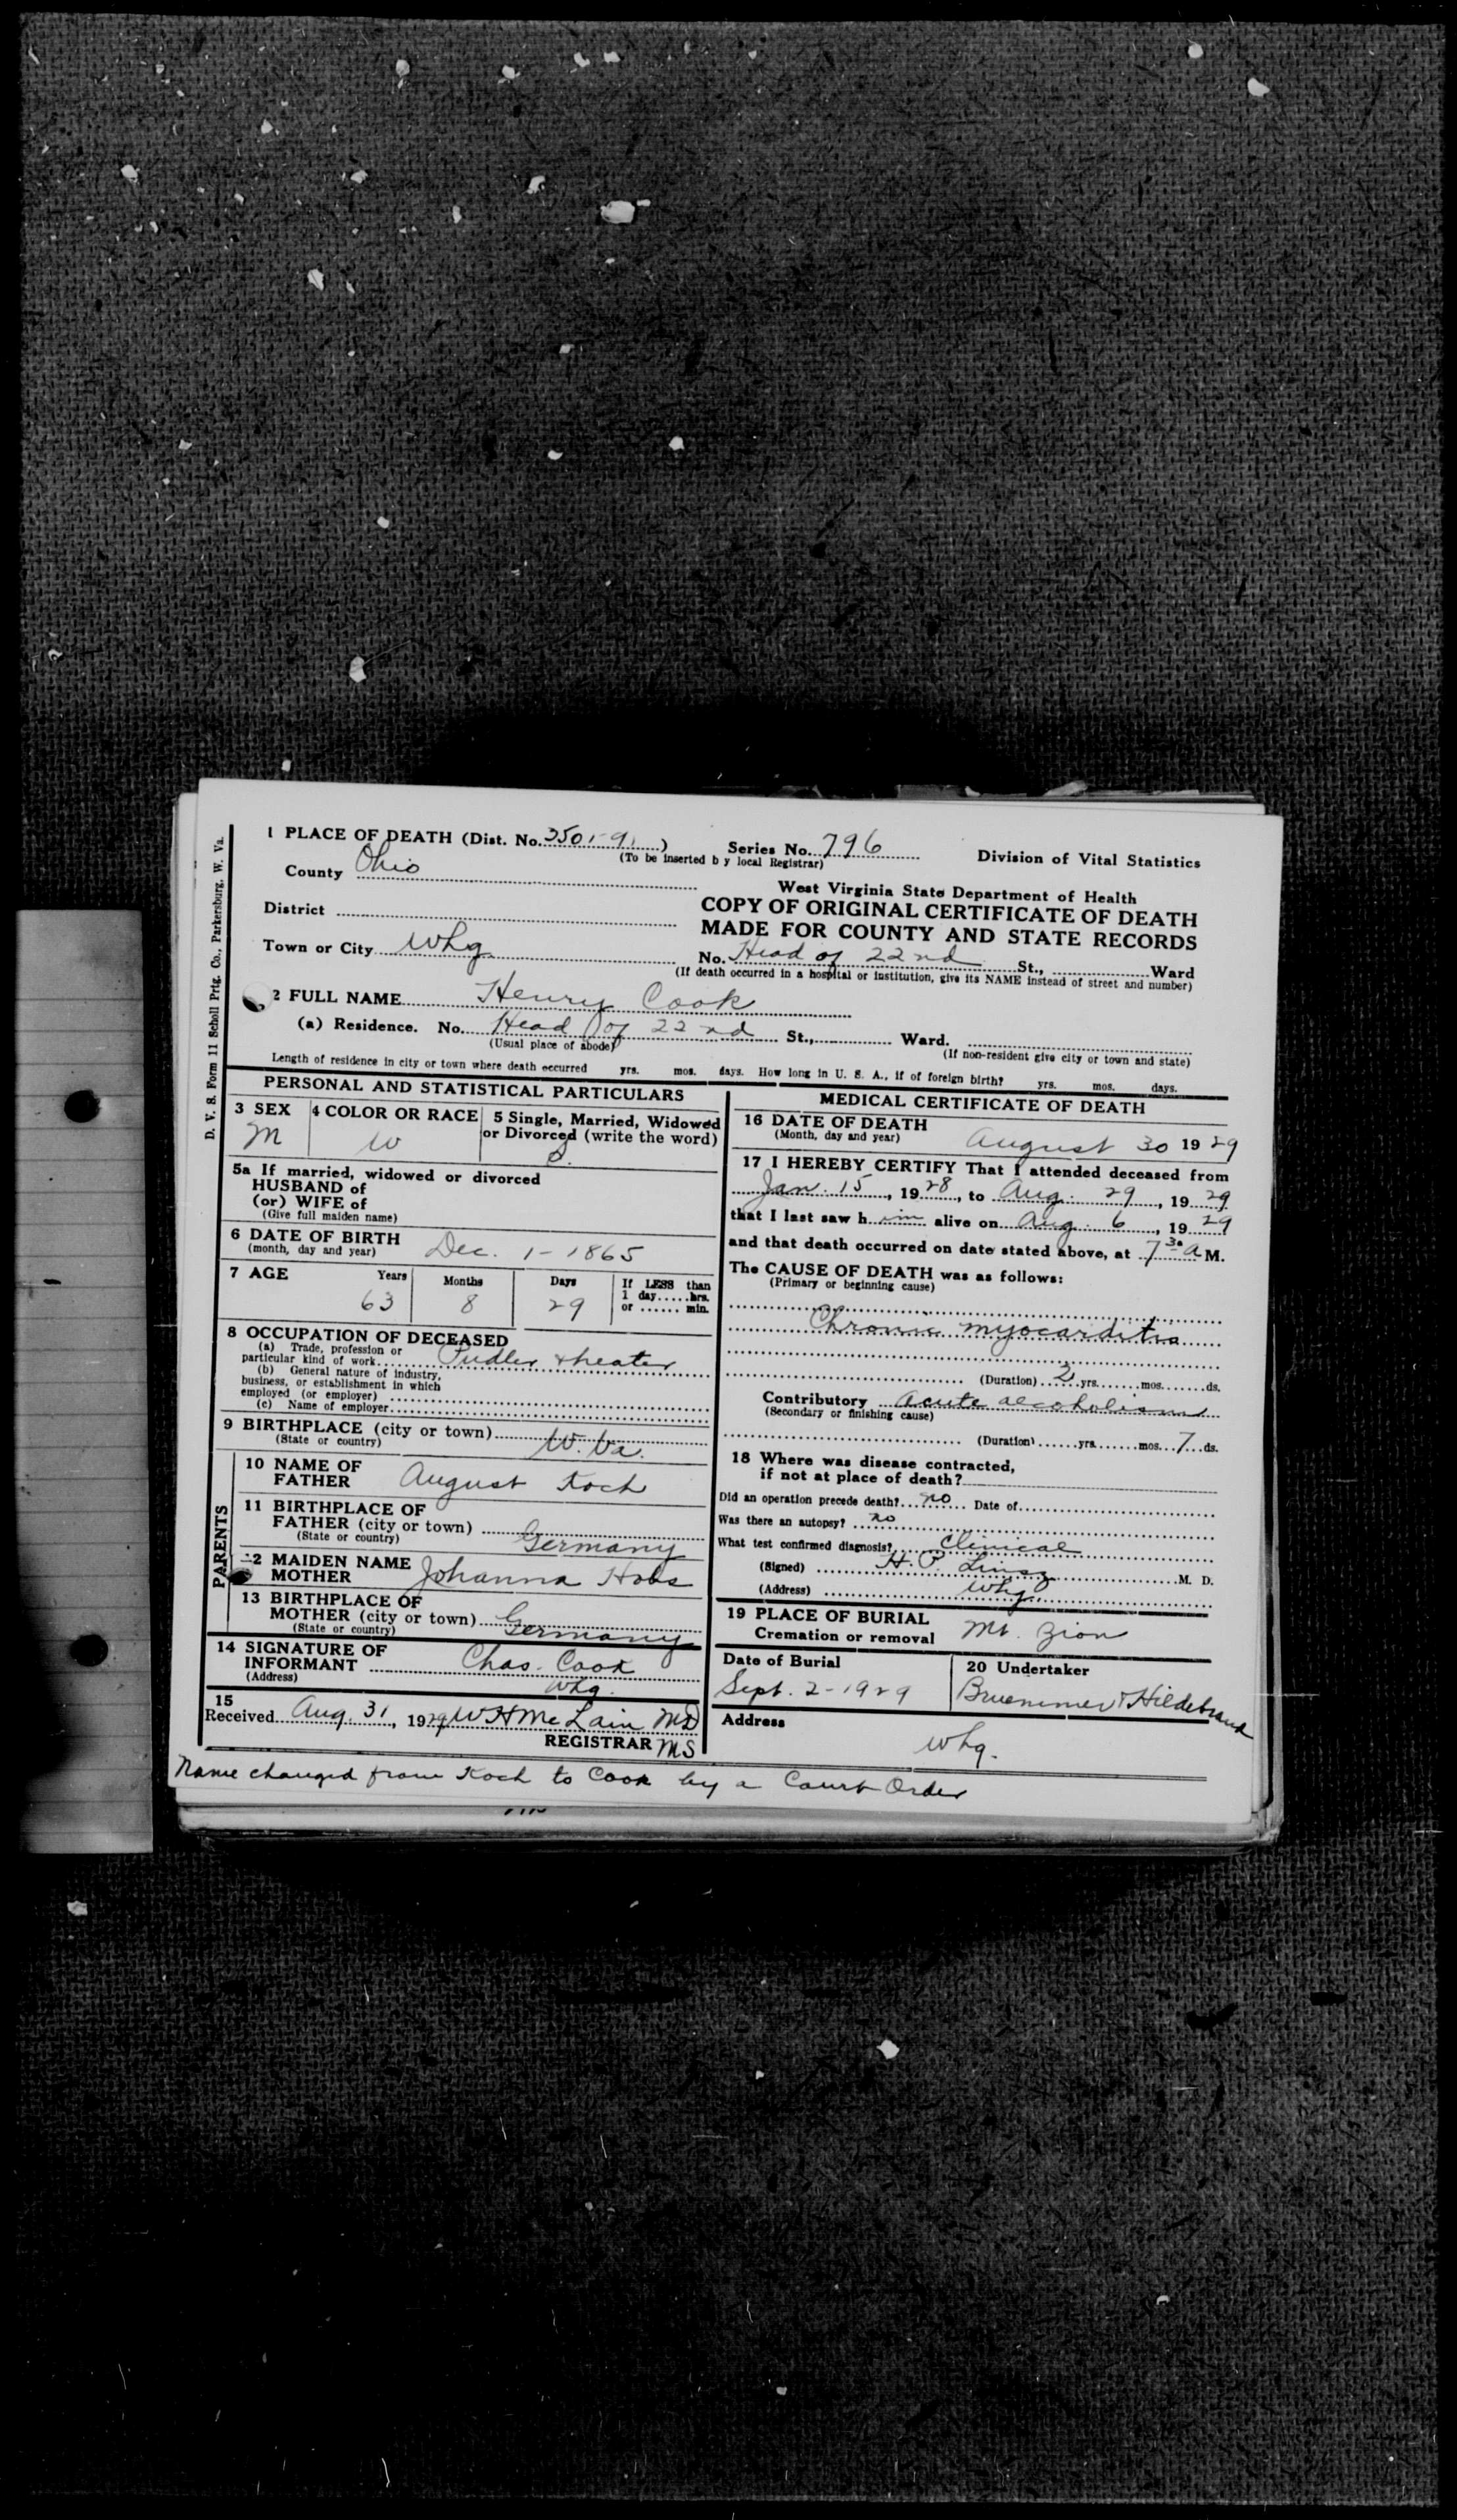 D. V. S. Form 11 Scholl Prtg. Co., Parkersburg, W. Va.
1 PLACE OF DEATH (Dist. No. 3501-91) Series No. 796 Division of Vital Statistics
(To be inserted b y local Registrar)
County Ohio
West Virginia State Department of Health
COPY OF ORIGINAL CERTIFICATE OF DEATH
MADE FOR COUNTY AND STATE RECORDS
District
Town or City Whg
No. Head of 22nd St., Ward
(If death occurred in a hospital or institution, give its NAME instead of street and number)
2 FULL NAME Henry Cook
(a) Residence. No. Head of 22nd St., Ward.
(Usual place of abode) (If non-resident give city or town and state)
Length of residence in city or town where death occurred yrs. mos. days. How long in U. S. A., if of foreign birth? yrs. mos. days.
PERSONAL AND STATISTICAL PARTICULARS
3 SEX 4 COLOR OR RACE 5 Single, Married, Widowed
or Divorced (write the word)
M W S.
5a If married, widowed or divorced
HUSBAND of
(or) WIFE of
(Give full maiden name)
6 DATE OF BIRTH Dec. 1-1865
(month, day and year)
7 AGE Years Months Days If LESS than
1 day.....hrs.
or ...... min.
63 8 29
8 OCCUPATION OF DECEASED
(a) Trade, profession or
particular kind of work Pudler & heater
(b) General nature of industry,
business, or establishment in which
employed (or employer)
(c) Name of employer
9 BIRTHPLACE (city or town) W. Va.
(State or country)
PARENTS
10 NAME OF
FATHER August Koch
11 BIRTHPLACE OF
FATHER (city or town) Germany
(State or country)
12 MAIDEN NAME
MOTHER Johanna Hobs
13 BIRTHPLACE OF
MOTHER (city or town) Germany
(State or country)
14 SIGNATURE OF
INFORMANT Chas. Cook
(Address) Whg.
15
Received Aug. 31, 1929 W H McLain MD
REGISTRAR MS
MEDICAL CERTIFICATE OF DEATH
16 DATE OF DEATH
(Month, day and year) August 30 1929
17 I HEREBY CERTIFY That I attended deceased from
Jan. 15, 1928, to Aug. 29, 1929
that I last saw him alive on Aug. 6, 1929
and that death occurred on date stated above, at 7 30 a M.
The CAUSE OF DEATH was as follows:
(Primary or beginning cause)
Chronic myocarditis
(Duration) 2 yrs. mos. ds.
Contributory Acute alcoholism
(Secondary or finishing cause)
(Duration) yrs. mos. 7 ds.
18 Where was disease contracted,
if not at place of death?
Did an operation precede death? no Date of
Was there an autopsy? no
What test confirmed diagnosis? Clinical
(Signed) H. P. Linsz M. D.
(Address) Whg.
19 PLACE OF BURIAL
Cremation or removal Mt. Zion
Date of Burial 20 Undertaker
Sept. 2-1929 Bruemmer & Hildebrand
Address
Whg.
Name changed from Koch to Cook by a Court Order